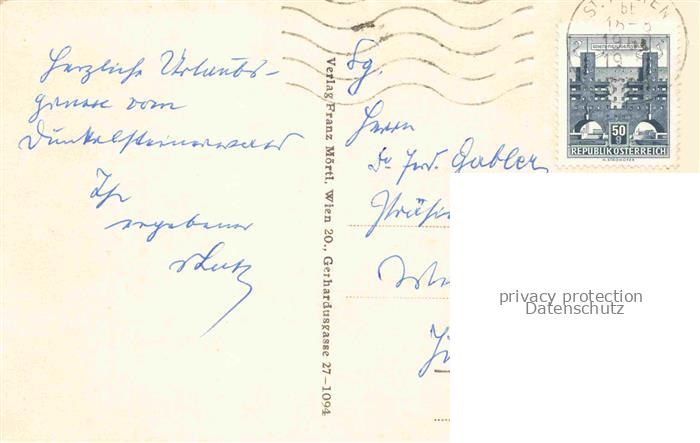 Herzliche Urlaubs-
grüsse vom
Dunkelsteinerwald
Ihr
ergebener
Verlag Franz Mörtl, Wien 20., Gerhardusgasse 27-1094
Sg.
Herrn
Dr. Gabler
ST. PÖLTEN
50
g
REPUBLIK ÖSTERREICH
privacy protection
Datenschutz